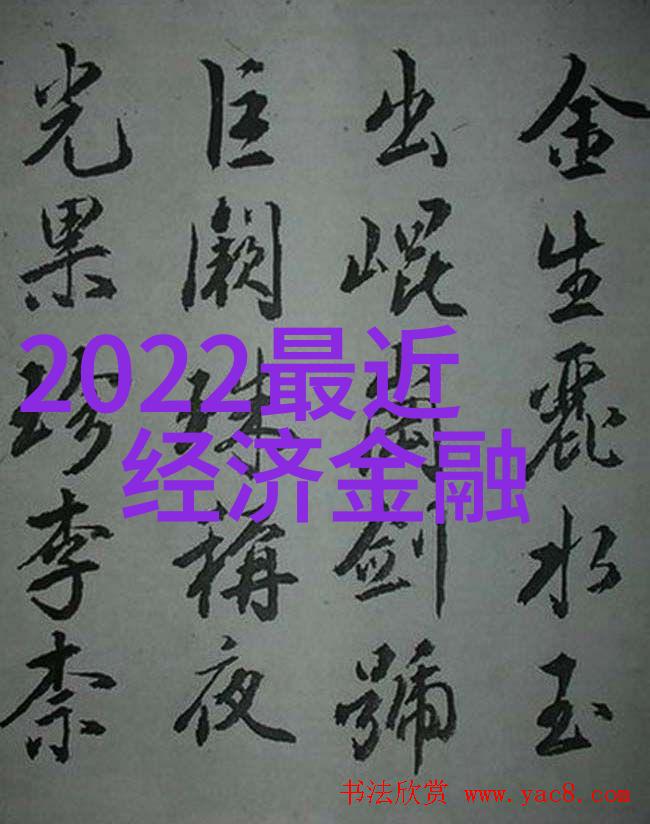 金生麗水玉
出崐崗劍號
巨闕珠稱夜
光果珍李柰
2022最近
经济金融
书法欣赏 www.yac8.com